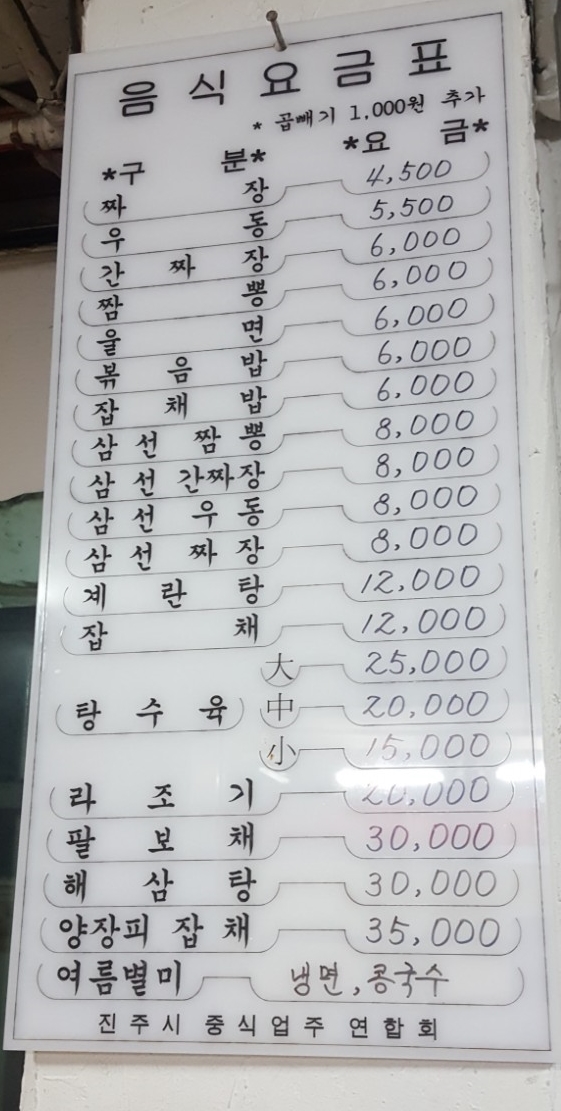 음식요금표
* 곱빼기 1.000원 추가
*구 분* *요 금*
짜 장 4,500
우 동 5,500
간 짜 장 6,000
짬 뽕 6,000
울 면 6,000
볶 음 밥 6,000
잡 채 밥 6,000
삼 선 짬 뽕 8,000
삼 선 간짜장 8,000
삼 선 우 동 8,000
삼 선 짜 장 8,000
계 란 탕 12,000
잡 채 12,000
大 25,000
탕 수 육 中 20,000
小 15,000
라 조 기 20,000
팔 보 채 30,000
해 삼 탕 30,000
양장피 잡 채 35,000
여름별미 냉면, 콩국수
진주시 중식업주 연합회